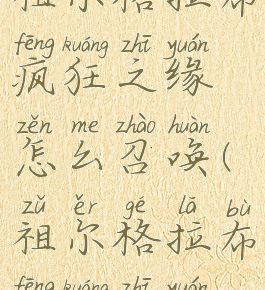 祖尔格拉布
fēng kuáng zhī yuán
疯狂之缘
zěn me zhào huàn
怎么召唤(
zǔ ěr gé lā bù
祖尔格拉布
fēng kuáng zhī yuán